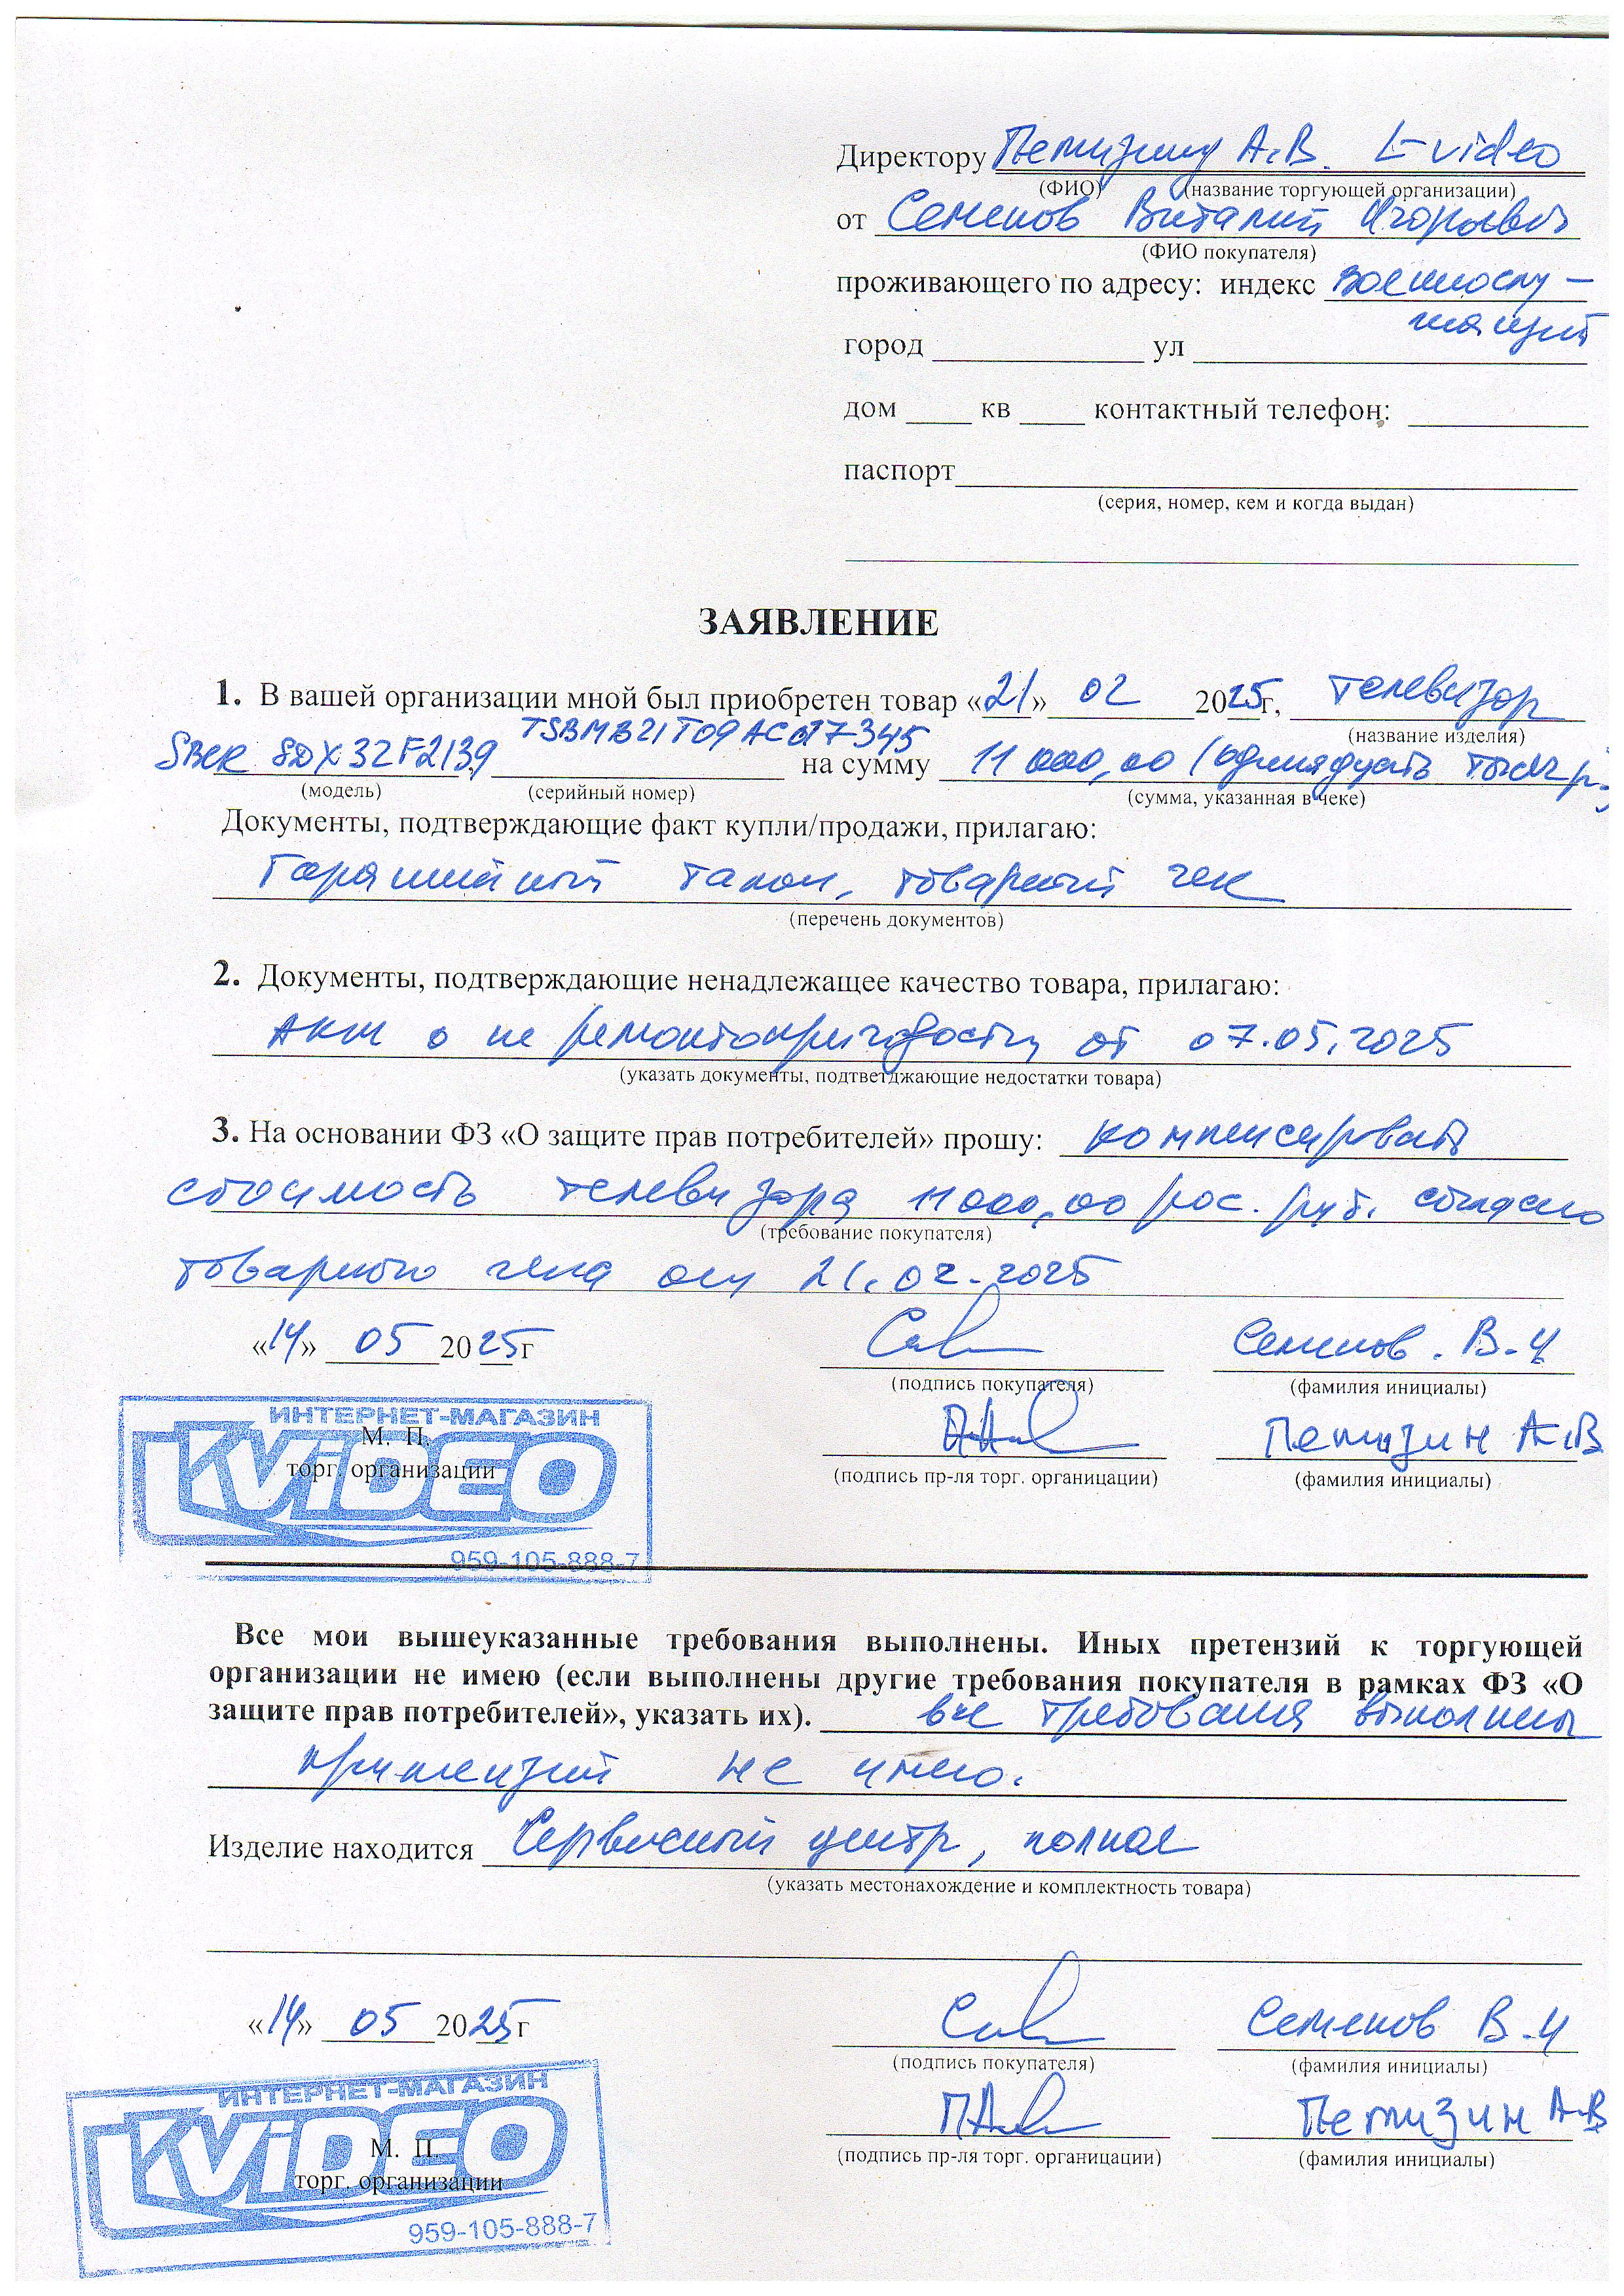 Директору Пемизину А.В. k-video
(ФИО) (название торгующей организации)
от Семенов Виталий Игоревич
(ФИО покупателя)
проживающего по адресу: индекс военнослу-
жащий
город ул
дом кв контактный телефон:
паспорт
(серия, номер, кем и когда выдан)
ЗАЯВЛЕНИЕ
1. В вашей организации мной был приобретен товар «21» 02 2025г, телевизор
(название изделия)
SBER SDX32F2139, TSBMB21T09AC017345 на сумму 11 000,00 (одинадцать тысяч р.)
(модель) (серийный номер) (сумма, указанная в чеке)
Документы, подтверждающие факт купли/продажи, прилагаю:
Гарантийный талон, товарный чек
(перечень документов)
2. Документы, подтверждающие ненадлежащее качество товара, прилагаю:
Акт о не ремонтопригодности от 07.05.2025
(указать документы, подтветджающие недостатки товара)
3. На основании ФЗ «О защите прав потребителей» прошу: компенсировать
стоимость телевизора 11000,00 рос. руб. согласно
(требование покупателя)
товарного чека от 21.02.2025
«14» 05 2025г Семенов. В.И
(подпись покупателя) (фамилия инициалы)
ИНТЕРНЕТ-МАГАЗИН
М. П. Пемизин А.В
KViDEO
торг. организации (подпись пр-ля торг. органицации) (фамилия инициалы)
959-105-888-7
Все мои вышеуказанные требования выполнены. Иных претензий к торгующей
организации не имею (если выполнены другие требования покупателя в рамках ФЗ «О
защите прав потребителей», указать их). все требования выполнены
притензий не имею.
Изделие находится Сервисный центр, полная
(указать местонахождение и комплектность товара)
«14» 05 2025г Семенов В.И
(подпись покупателя) (фамилия инициалы)
ИНТЕРНЕТ-МАГАЗИН
KViDEO
М. П. Пемизин А.В
торг. организации (подпись пр-ля торг. органицации) (фамилия инициалы)
959-105-888-7